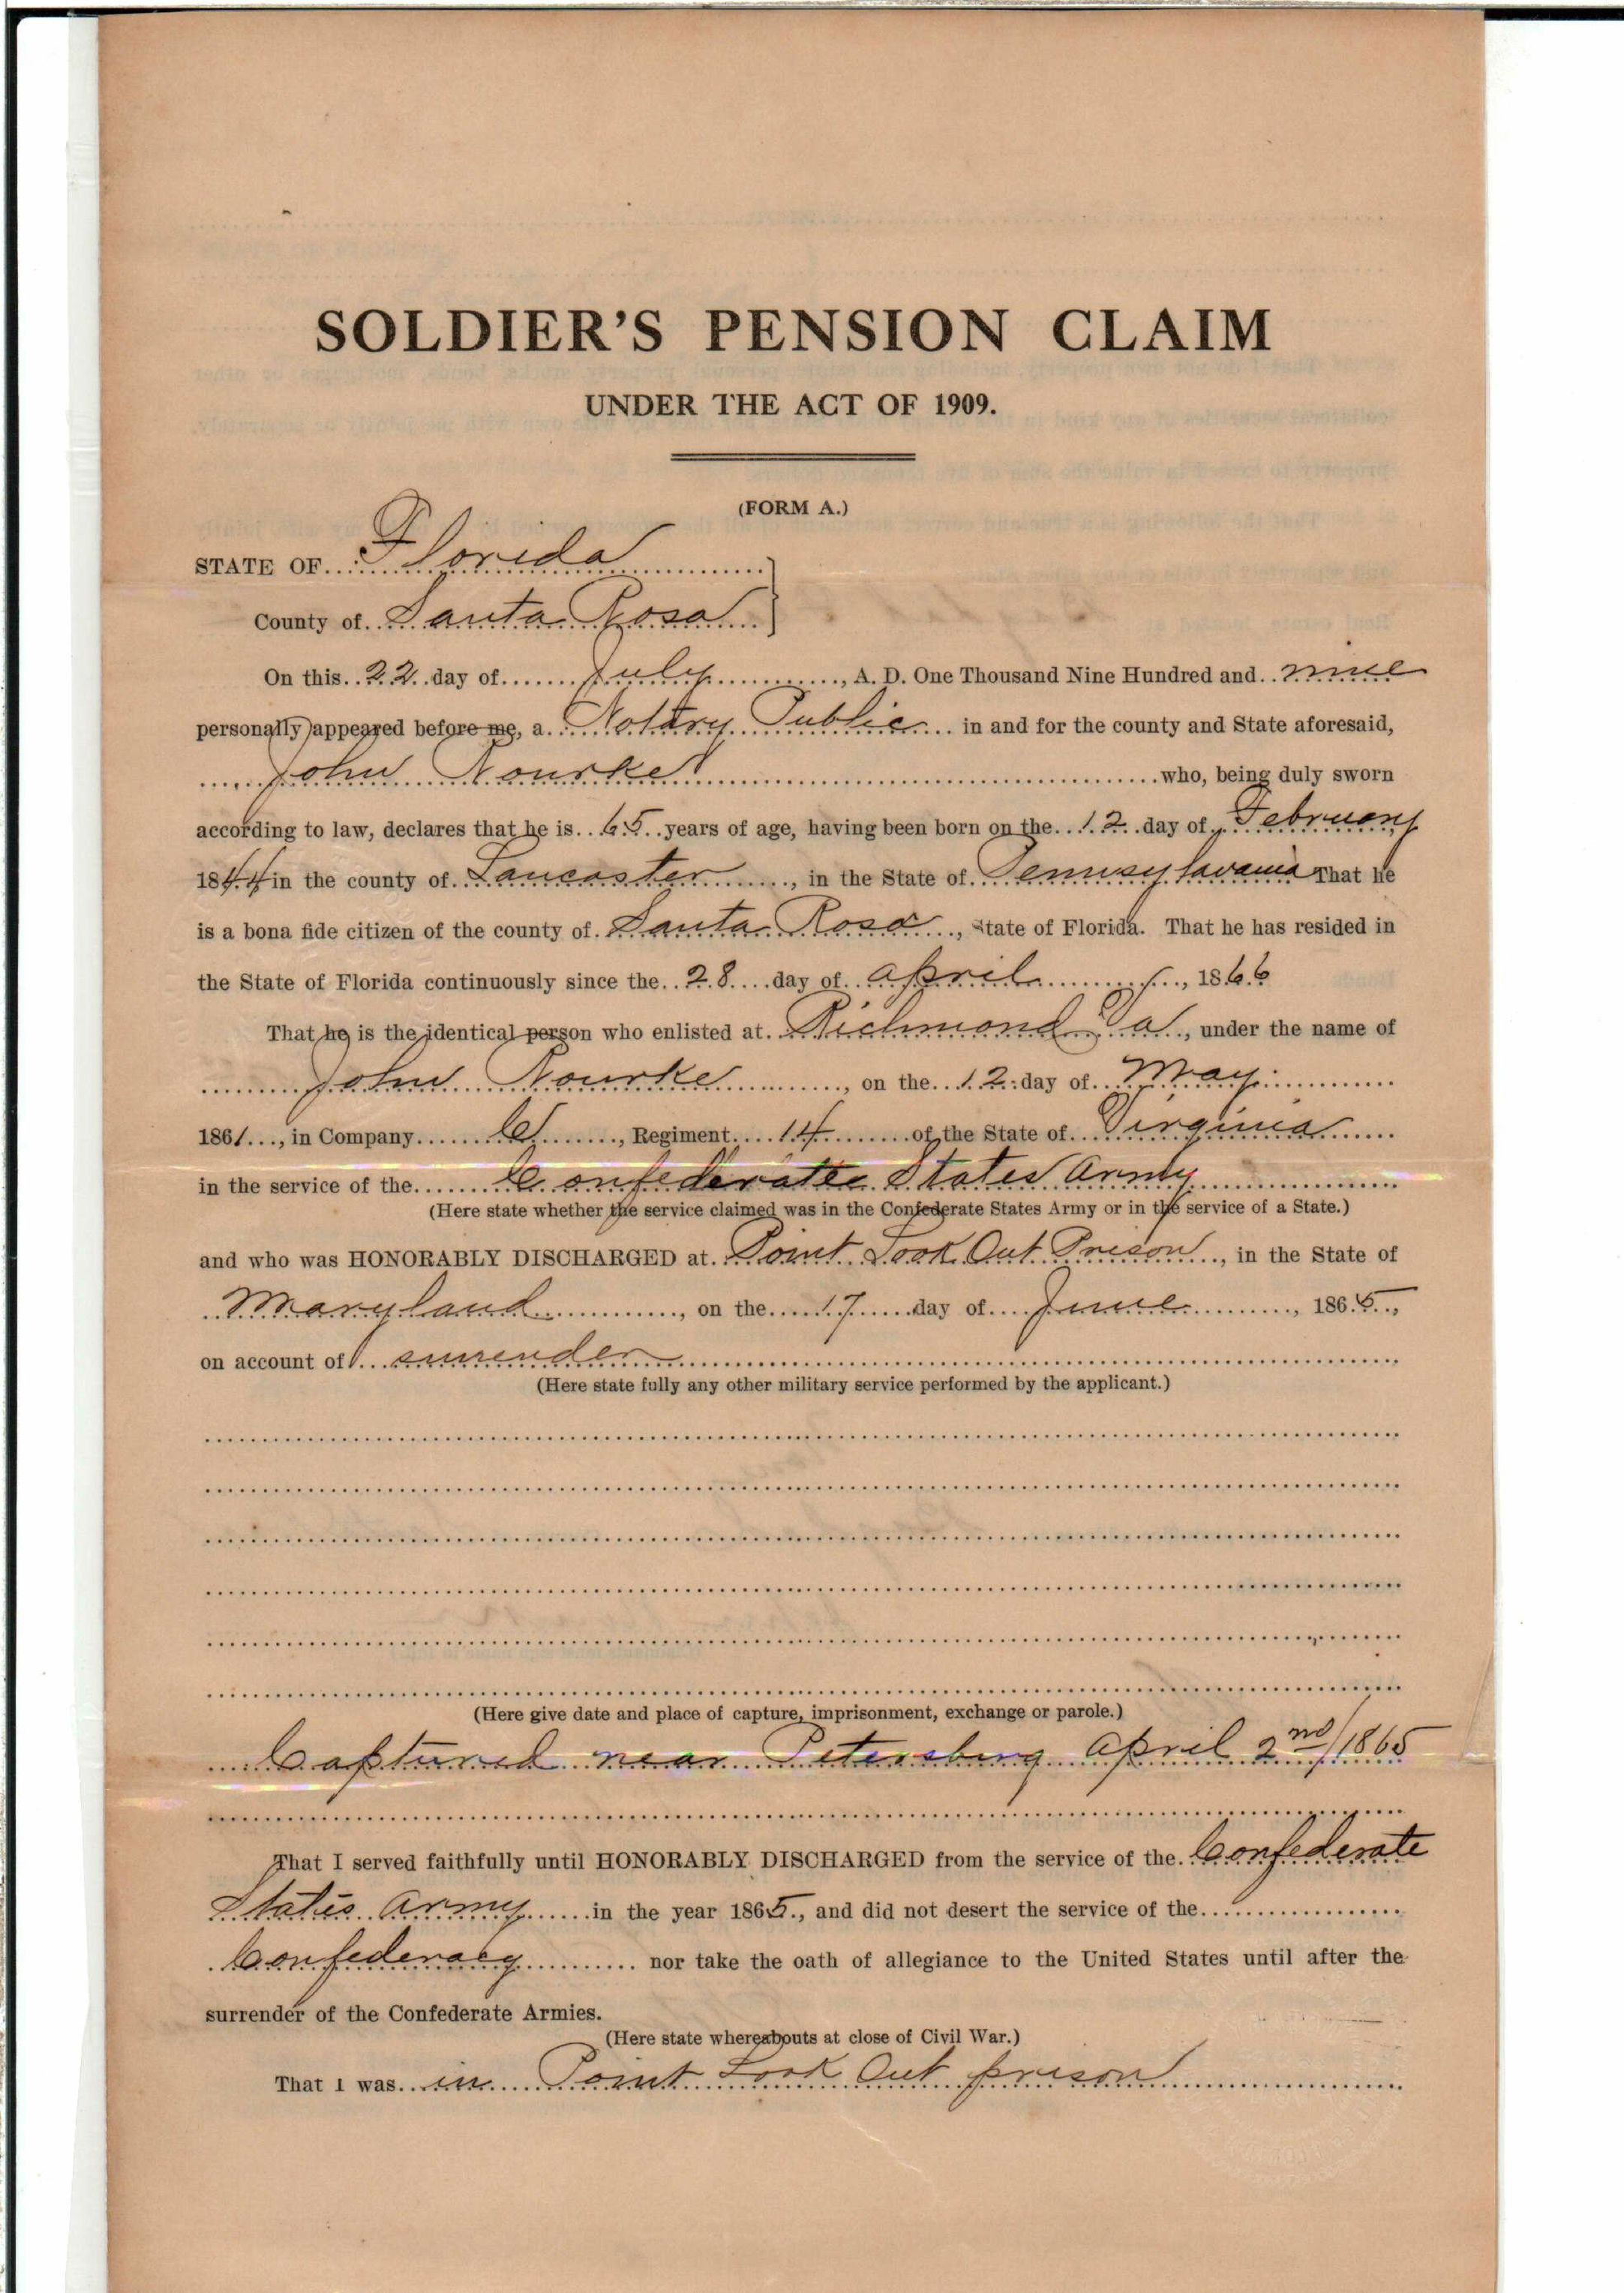 SOLDIER'S PENSION CLAIM
UNDER THE ACT OF 1909.
(FORM A.)
STATE OF Florida
County of Santa Rosa
On this 22 day of July, A. D. One Thousand Nine Hundred and nine
personally appeared before me, a Notary Public in and for the county and State aforesaid,
John Rourke who, being duly sworn
according to law, declares that he is 65 years of age, having been born on the 12 day of February
1844 in the county of Lancaster, in the State of Pennsylvania That he
is a bona fide citizen of the county of Santa Rosa, State of Florida. That he has resided in
the State of Florida continuously since the 28 day of April, 1866
That he is the identical person who enlisted at Richmond Va, under the name of
John Rourke, on the 12 day of May
1861, in Company C, Regiment 14 of the State of Virginia
in the service of the Confederate States Army
(Here state whether the service claimed was in the Confederate States Army or in the service of a State.)
and who was HONORABLY DISCHARGED at Point Look Out Prison, in the State of
Maryland, on the 17 day of June, 1865,
on account of surrender
(Here state fully any other military service performed by the applicant.)
(Here give date and place of capture, imprisonment, exchange or parole.)
Captured near Petersburg April 2nd/1865
That I served faithfully until HONORABLY DISCHARGED from the service of the Confederate
States Army in the year 1865, and did not desert the service of the
Confederacy nor take the oath of allegiance to the United States until after the
surrender of the Confederate Armies.
(Here state whereabouts at close of Civil War.)
That I was in Point Look Out prison